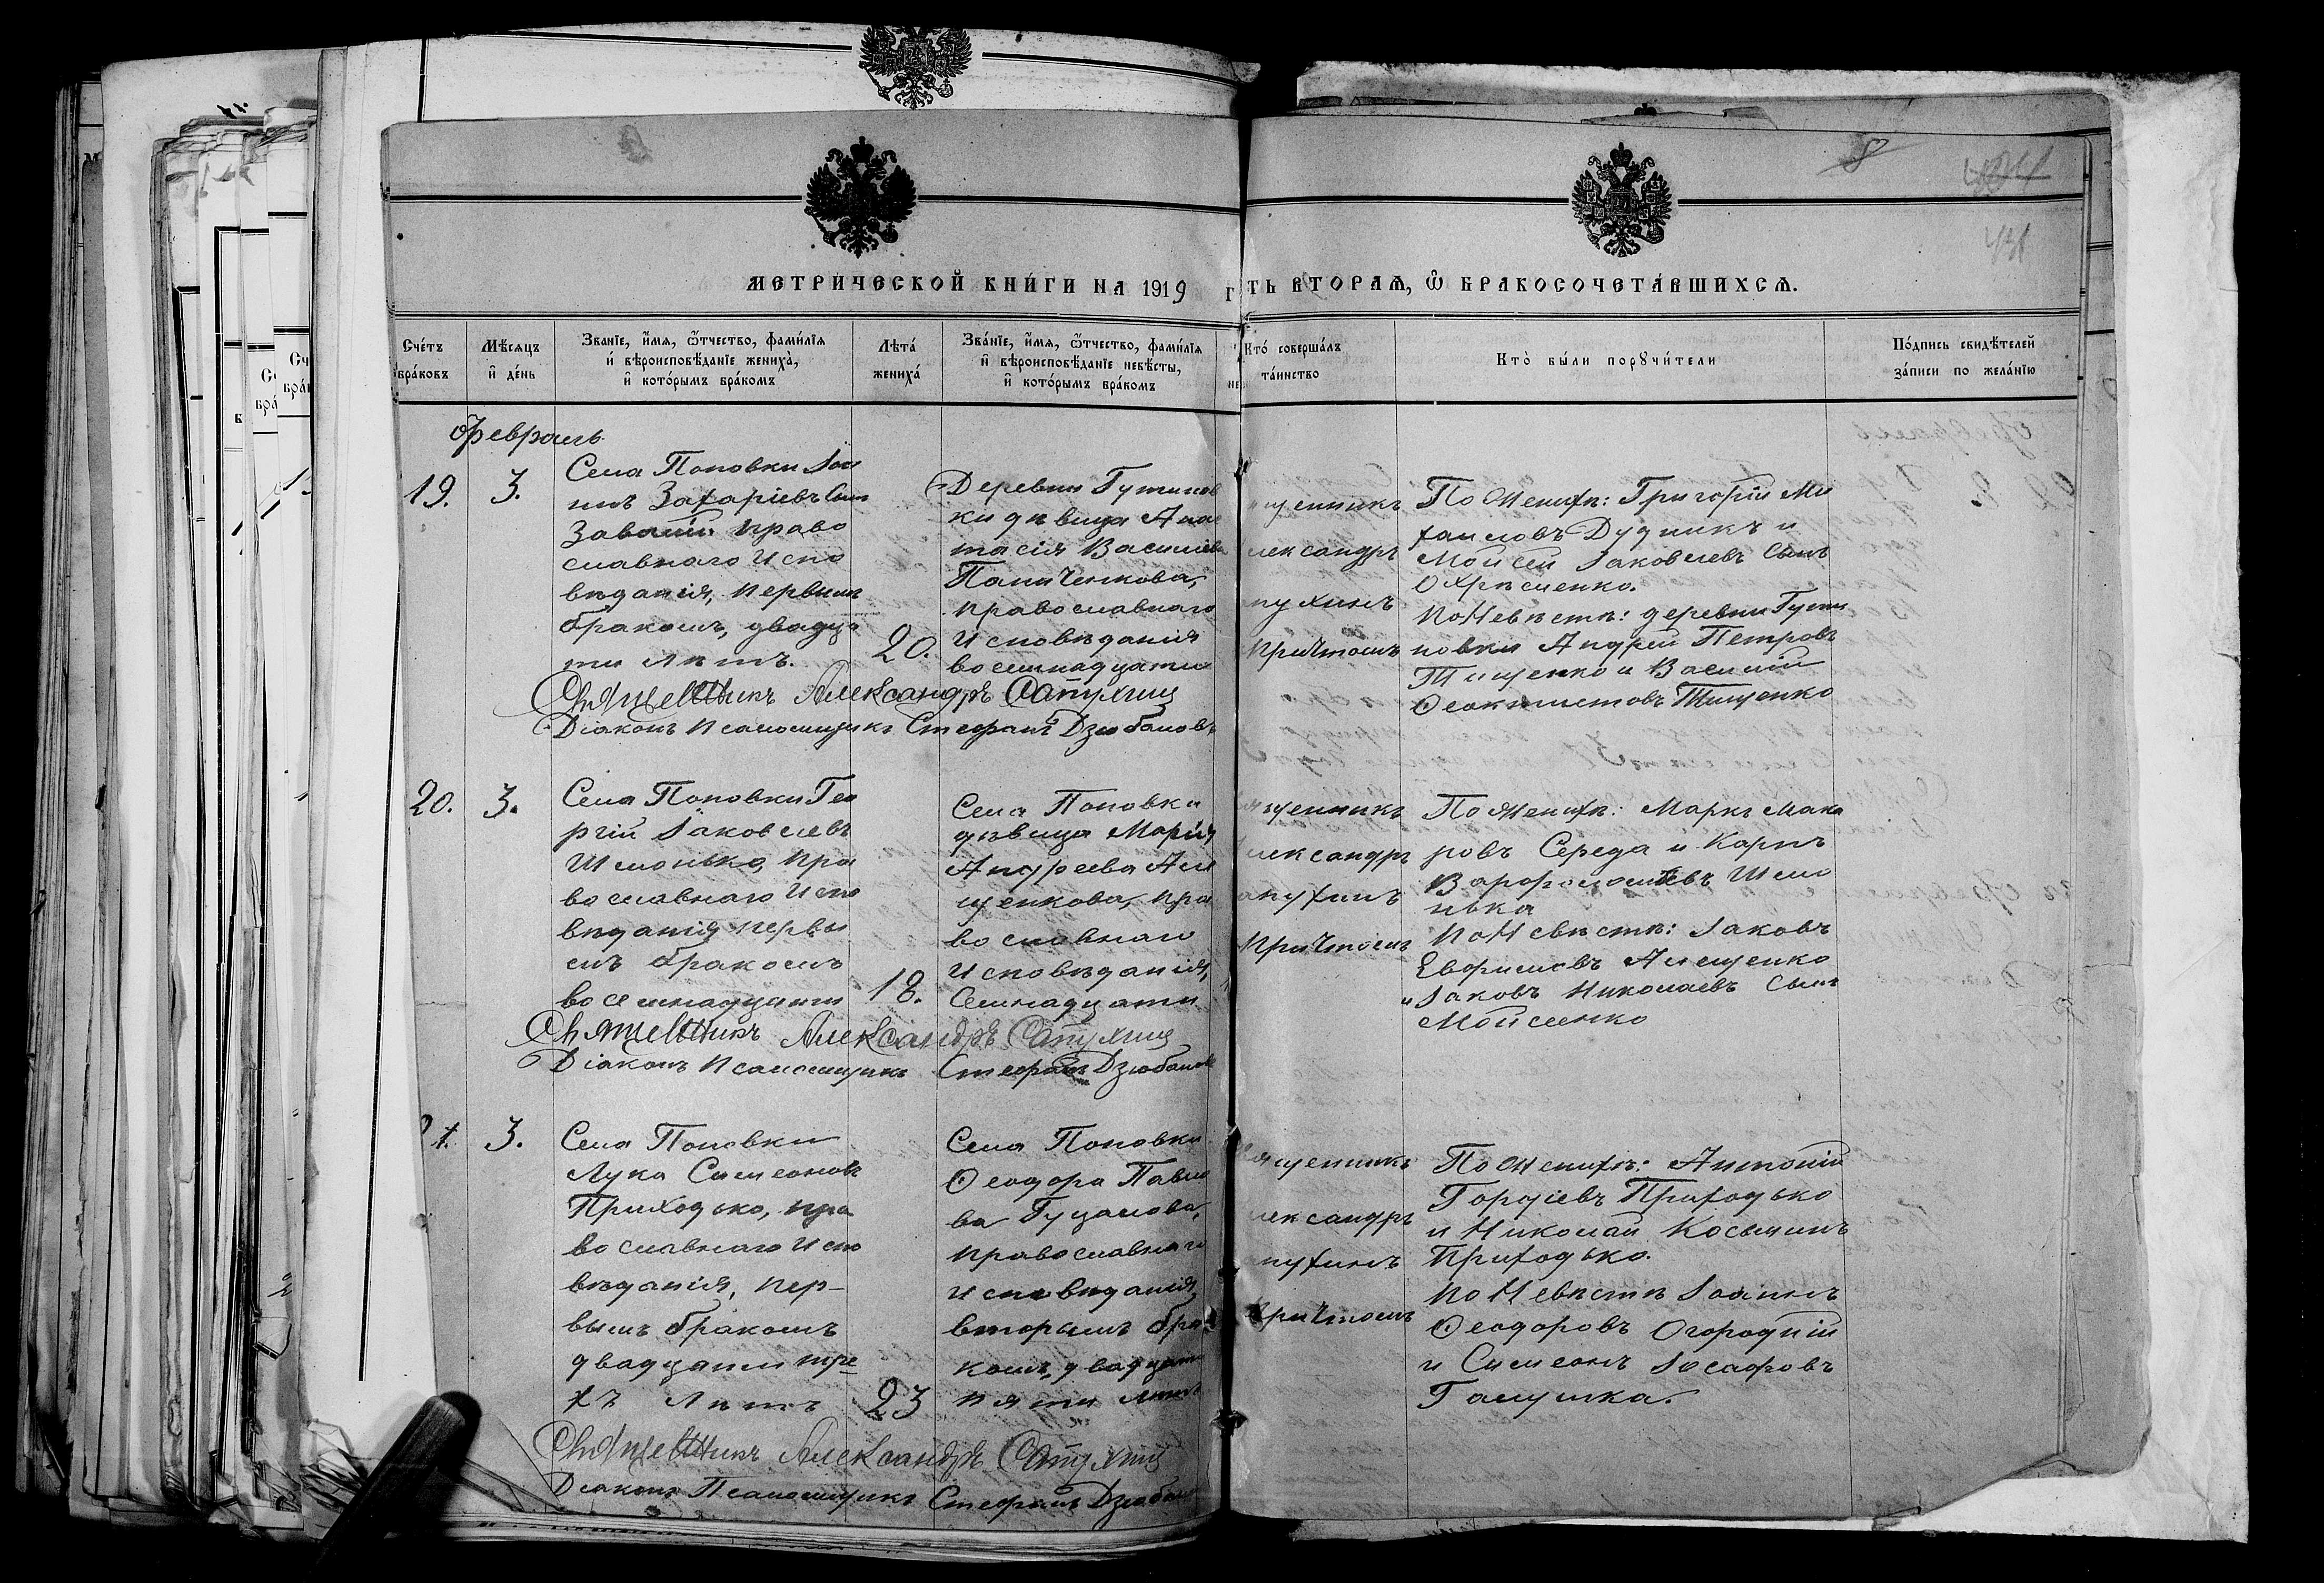 МЕТРИЧЕСКОЙ КНИГИ НА 1919 Г
ТЬ ВТОРАЯ, Ѡ БРАКОСОЧЕТАВШИХСЯ.
431
Счетъ браковъ
Мѣсяцъ и день
Званїе, имя, ѿчество, фамилїя и вѣроисповѣданїе жениха, и которымъ бракомъ
Лѣта жениха
Званїе, имя, ѿчество, фамилїя и вѣроисповѣданїе невѣсты, и которымъ бракомъ
Кто совершалъ таинство
Кто были порꙋчители
Подпись свидѣтелей записи по желанію
Февраль
19.
3.
Села Поповки Іоан
нъ Захаріевъ Сынъ
право
славнаго испо
вѣданія, первымъ
бракомъ, двадца
ти лѣтъ.
20.
Деревни Гутинов
ки дѣвица Анас
тасія Василіева
Паниченкова,
православнаго
исповѣданія
восемнадцати
щенникъ
лександръ
пухинъ
причтомъ
По Женихѣ: Григорій Ми
хаиловъ Дудникъ и
Моисей Іаковлевъ Сынъ
Охрѣменко.
По Невѣстѣ: деревни Гути
новки Андрей Петровъ
Тищенко и Василій
Ѳеоктистовъ Тищенко
Священникъ Александръ Сапухинъ
Діаконъ Псаломщикъ Стефанъ Дзюбановъ
20.
3.
Села Поповки Гео
ргій Іаковлевъ
Шмонько, пра
вославнаго испо
вѣданія первы
мъ бракомъ
восемнадцати
18.
Села Поповки
дѣвица Марія
Андреева Али
щенкова, пра
вославнаго
исповѣданія,
Семнадцати
щенникъ
лександръ
апухинъ
причтомъ
По Женихѣ: Маркъ Мака
ровъ Середа и Карпъ
Варфоломеевъ Шмо
нька
По Невѣстѣ: Іаковъ
Евфимовъ Алещенко
и Іаковъ Николаевъ Сынъ
Мойсеенко
Священникъ Александръ Сапухинъ
Діаконъ Псаломщикъ Стефанъ Дзюбановъ
21.
3.
Села Поповки
Лука Симеоновъ
Приходько, пра
вославнаго испо
вѣданія, пер-
вымъ бракомъ
двадцати тре
хъ лѣтъ
23
Села Поповки
Ѳеодора Павло
ва Гуцалова,
православнаго
исповѣданія,
вторымъ бра
комъ, двадцати
пяти лѣтъ
щенникъ
лександръ
пухинъ
причтомъ
По Женихѣ: Антоній
Гордіевъ Приходько
и Николай Косьминъ
Приходько.
По Невѣстѣ Іоаннъ
Ѳеодоровъ Огородній
и Симеонъ Іосафовъ
Галушка.
Священникъ Александръ Сапухинъ
Діаконъ Псаломщикъ Стефанъ Дзюбан